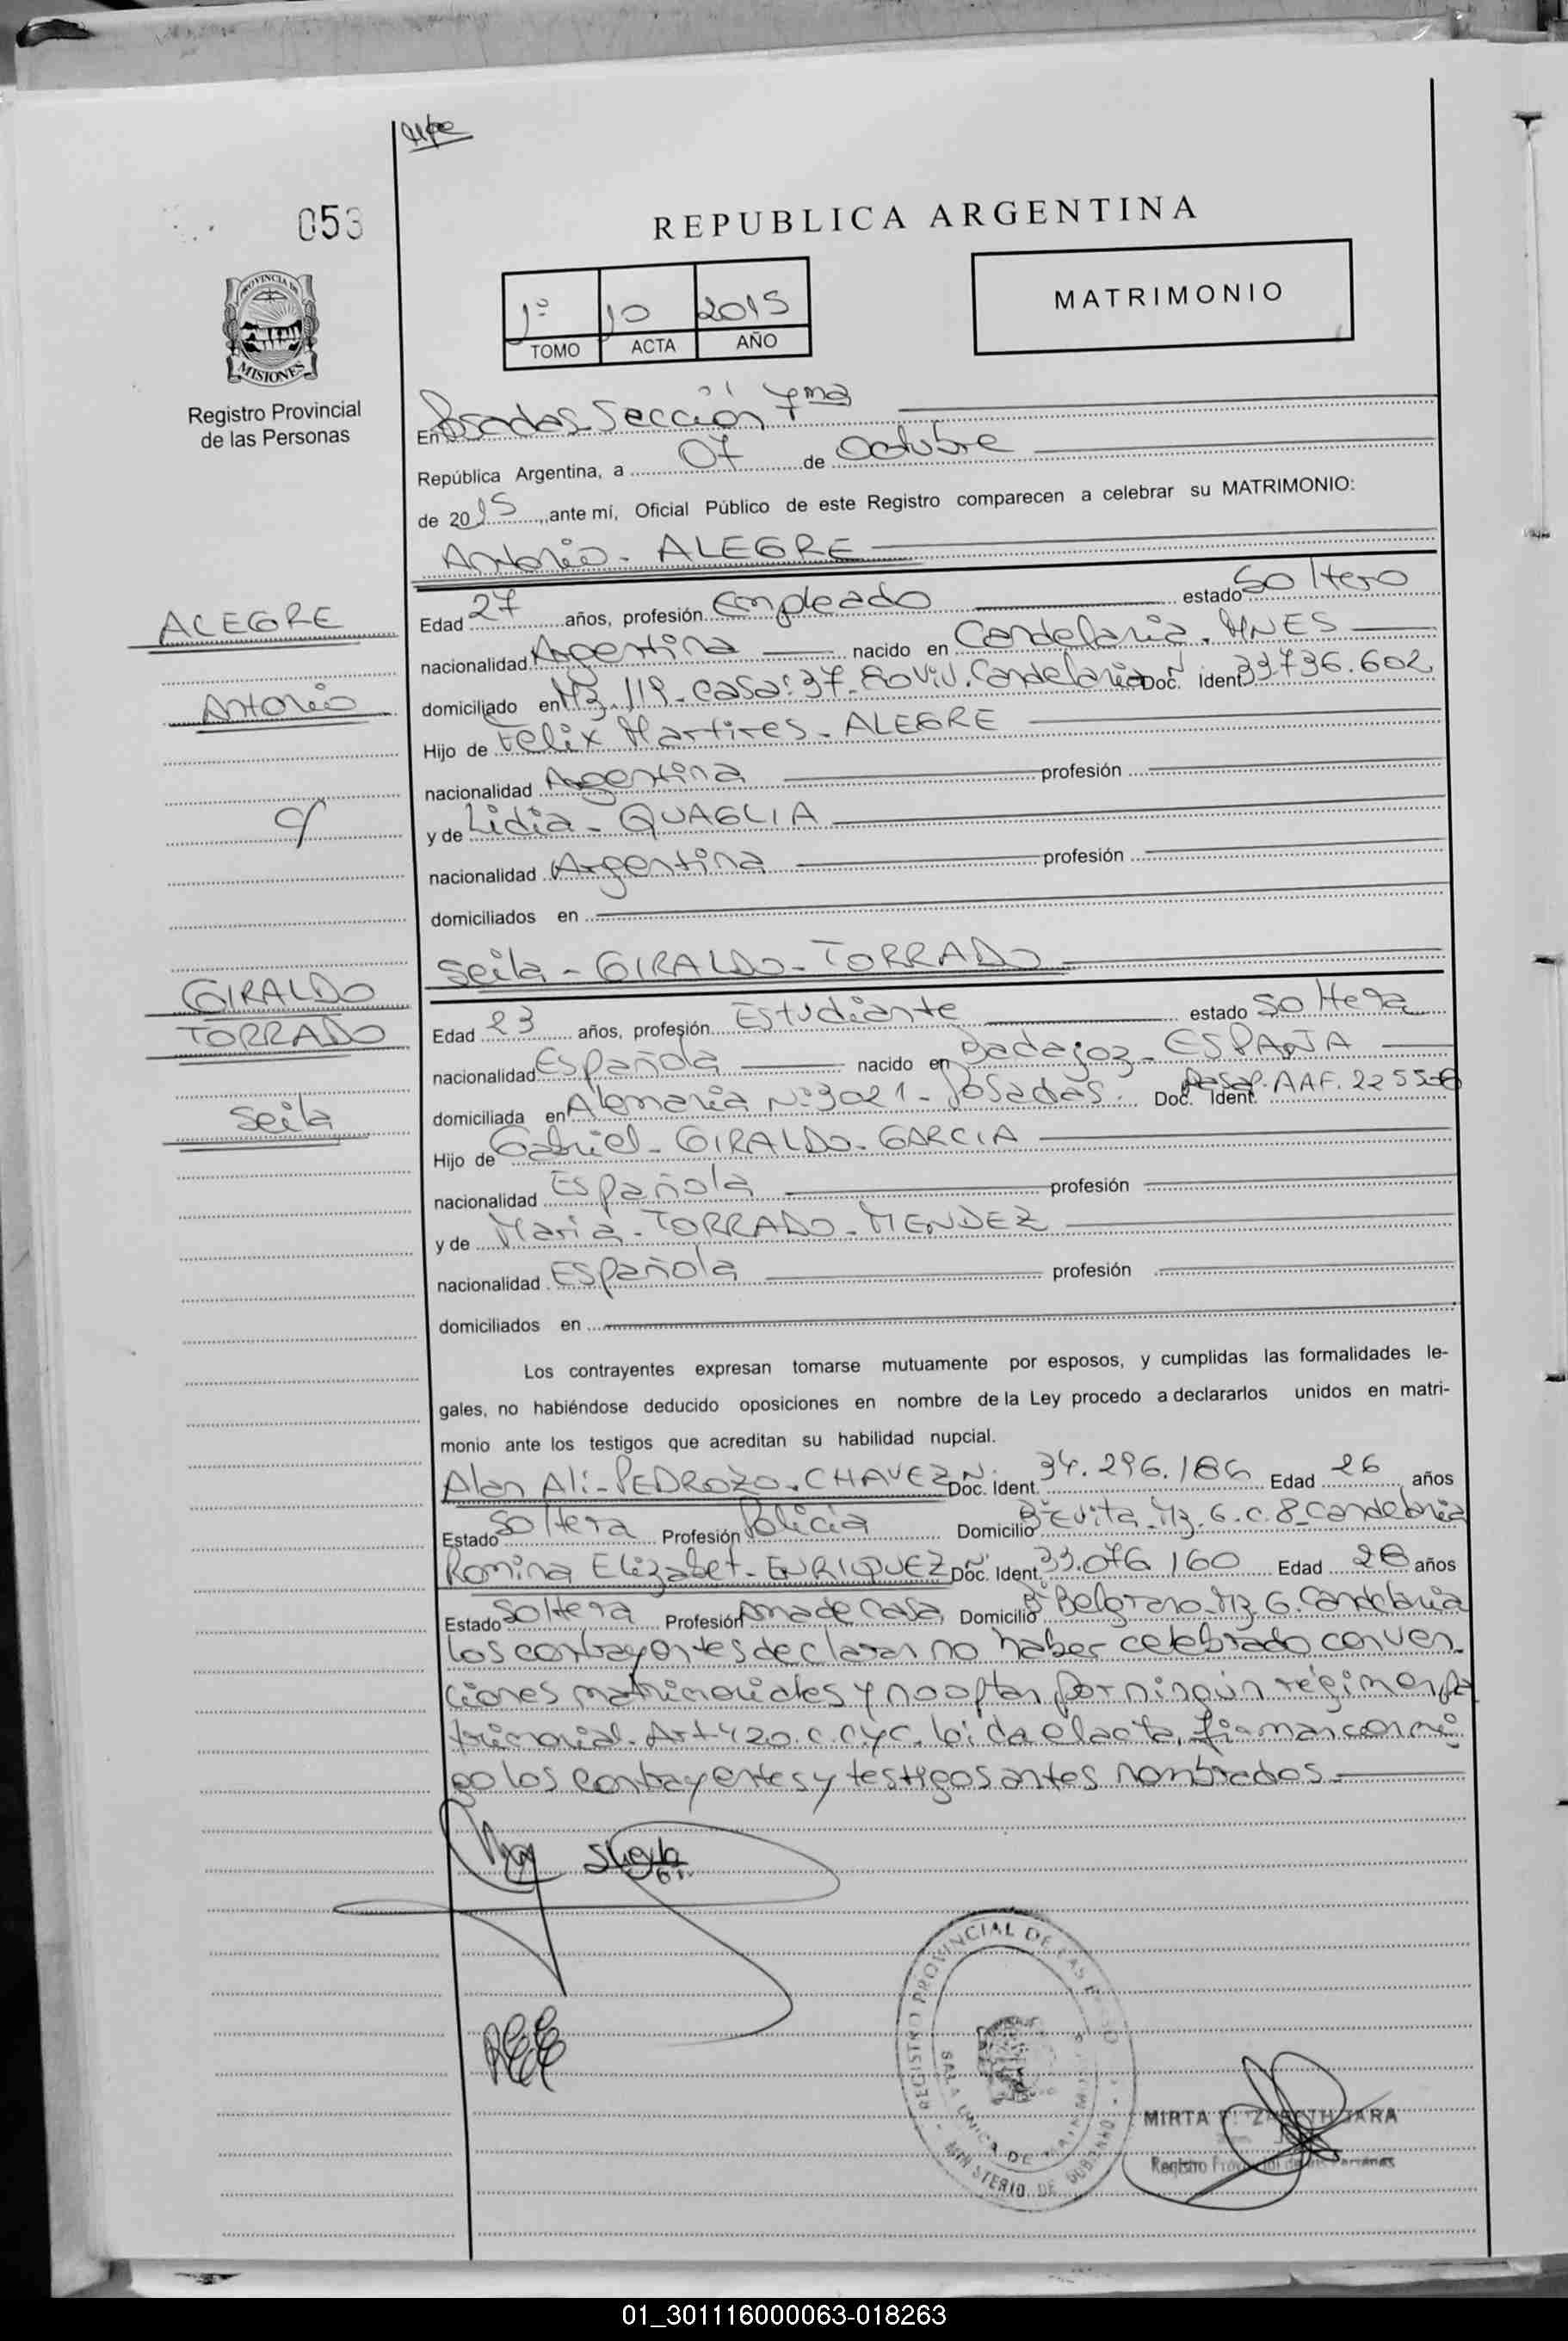 053
REPUBLICA ARGENTINA
PROVINCIA DE
MISIONES
Registro Provincial
de las Personas
1º 10 2015
TOMO ACTA AÑO
MATRIMONIO
En Posadas Sección 7ma
República Argentina, a 07 de Octubre
de 2015, ante mí, Oficial Público de este Registro comparecen a celebrar su MATRIMONIO:
Antonio - ALEGRE
ALEGRE
Antonio
c/
GIRALDO
TORRADO
Seila
Edad 27 años, profesión Empleado estado Soltero
nacionalidad Argentina nacido en Candelaria. MNES
domiciliado en Mz. 119 - casa: 37 - Candelaria Doc. Ident. 33.736.602
Hijo de Felix Martires - ALEGRE
nacionalidad Argentina profesión
y de Lidia - QUAGLIA
nacionalidad Argentina profesión
domiciliados en
Seila - GIRALDO - TORRADO
Edad 23 años, profesión Estudiante estado Soltera
nacionalidad Española nacido en Badajoz - ESPAÑA
domiciliada en Alemania Nº 3021 - Posadas. Doc. Ident. Pasap. AAF.
Hijo de Gabriel - GIRALDO - GARCIA
nacionalidad Española profesión
y de Maria - TORRADO - MENDEZ
nacionalidad Española profesión
domiciliados en
Los contrayentes expresan tomarse mutuamente por esposos, y cumplidas las formalidades le-
gales, no habiéndose deducido oposiciones en nombre de la Ley procedo a declararlos unidos en matri-
monio ante los testigos que acreditan su habilidad nupcial.
Alan Ali - PEDROZO - CHAVEZ Doc. Ident. 34.296.186 Edad 26 años
Estado Soltera Profesión Policia Domicilio Bº Evita - Mz. G. C. 8 - Candelaria
Romina Elizabet - ENRIQUEZ Doc. Ident. 33.076.160 Edad 28 años
Estado Soltera Profesión Ama de Casa Domicilio Bº Belgrano - Mz G. Candelaria
Los contrayentes declaran no haber celebrado conven-
ciones matrimoniales y no optan por ningún régimen pa
trimonial. Art 420. C.C.y C. leida el acta, firman conmi
go los contrayentes y testigos antes nombrados.
REGISTRO PROVINCIAL DE LAS
MINISTERIO DE GOBIERNO
SALA UNICA DE
MIRTA JARA
Registro Provincial de las Personas
01_301116000063-018263